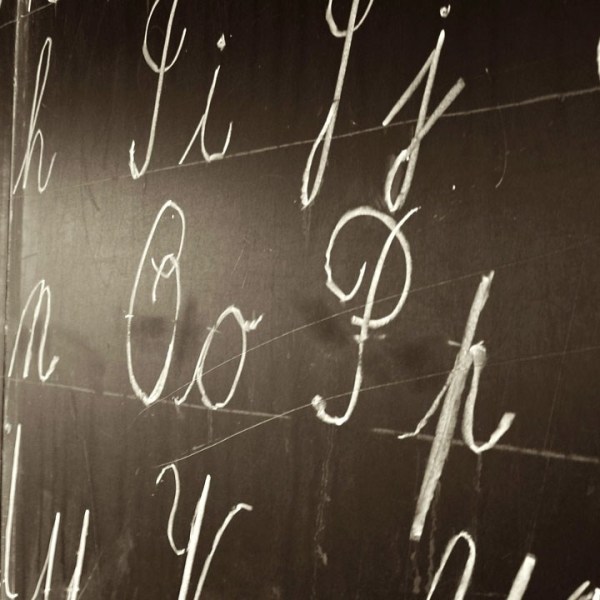 h I i J j
n O o P p
u V